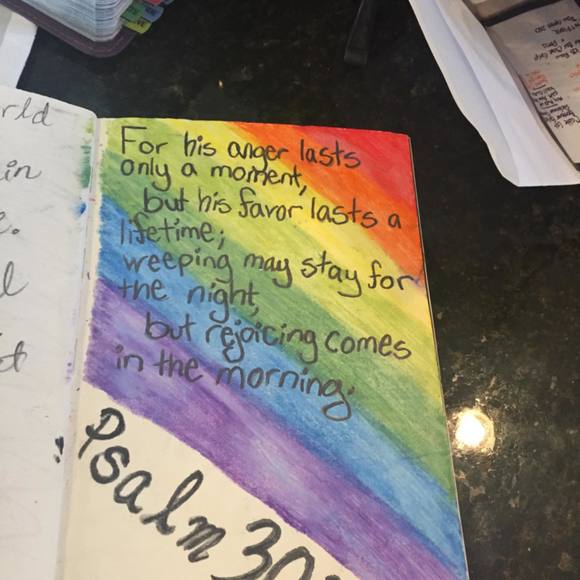 For his anger lasts
only a moment,
but his favor lasts a
lifetime;
weeping may stay for
the night,
but rejoicing comes
in the morning.
Psalm 30